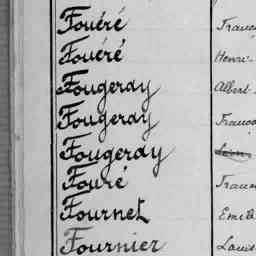 Fouéré Franço
Fouéré Henri
Fougeray Albert
Fougeray Franço
Fougeray
Fouré Franç
Fournet Emile
Fournier Louis